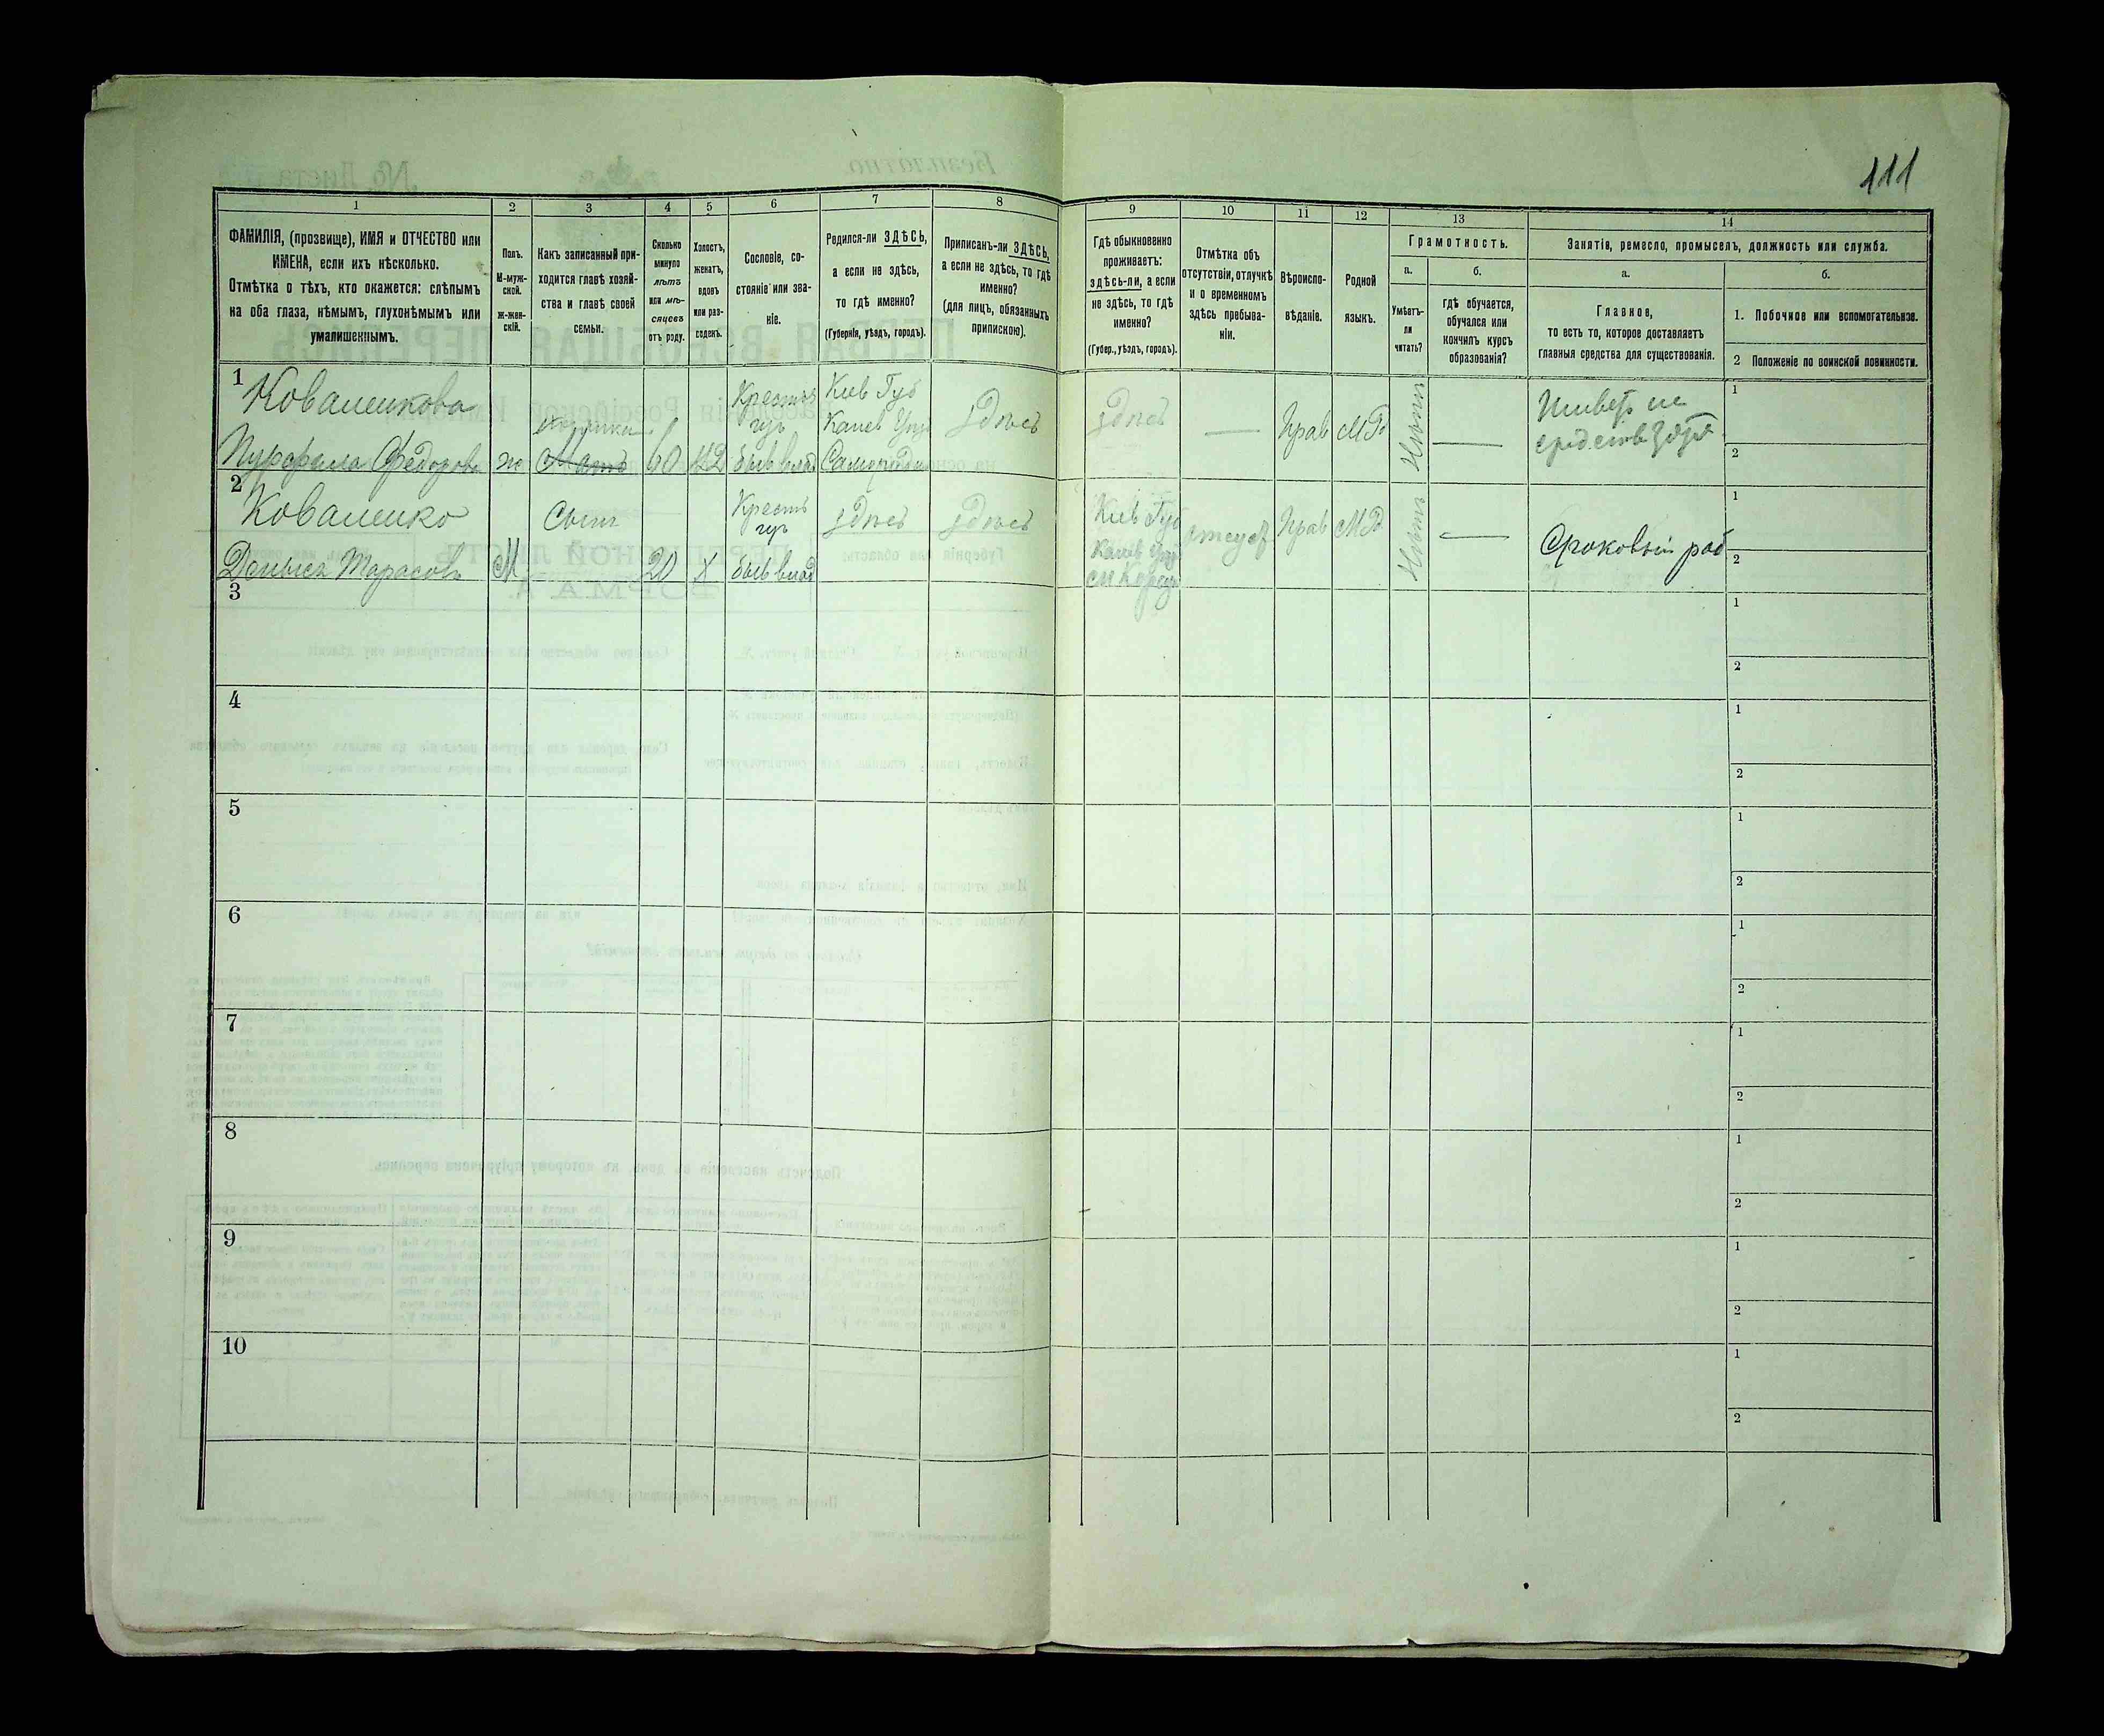 111
1
2
3
4
5
6
7
8
9
10
11
12
13
14
ФАМИЛІЯ, (прозвище), ИМЯ и ОТЧЕСТВО или
ИМЕНА, если ихъ нѣсколько.
Отмѣтка о тѣхъ, кто окажется: слѣпымъ
на оба глаза, нѣмымъ, глухонѣмымъ или
умалишеннымъ.
Полъ.
М-муж-
ской.
Ж-жен-
скій.
Какъ записанный при-
ходится главѣ хозяй-
ства и главѣ своей
семьи.
Сколько
минуло
лѣтъ
или мѣ-
сяцевъ
отъ роду.
Холостъ,
женатъ,
вдовъ
или раз-
веденъ.
Сословіе, со-
стояніе или зва-
ніе.
Родился-ли ЗДѢСЬ,
а если не здѣсь,
то гдѣ именно?
(Губернія, уѣздъ, городъ).
Приписанъ-ли ЗДѢСЬ,
а если не здѣсь, то гдѣ
именно?
(для лицъ, обязанныхъ
припискою).
Гдѣ обыкновенно
проживаетъ:
здѣсь-ли, а если
не здѣсь, то гдѣ
именно?
(Губер., уѣздъ, городъ).
Отмѣтка объ
отсутствіи, отлучкѣ
и о временномъ
здѣсь пребыва-
ніи.
Вѣроиспо-
вѣданіе.
Родной
языкъ.
Грамотность.
а.
Умѣетъ-
ли
читать?
б.
гдѣ обучается,
обучался или
кончилъ курсъ
образованія?
Занятія, ремесло, промыселъ, должность или служба.
а.
Главное,
то есть то, которое доставляетъ
главныя средства для существованія.
б.
1. Побочное или вспомогательное.
2 Положеніе по воинской повинности.
1
Коваленкова
Федорова
ж
Мать
60
Крестья
бывъ влад
Кіев Губ
Канев
здѣсь
здѣсь
—
Прав
МР
Нѣтъ
—
Живетъ на
1
2
2
Коваленко
Данила Тарасовъ
М
Сынъ
20
Х
Крестья
бывъ влад
здѣсь
здѣсь
Кіев Губ
Канев
Прав
МР
Нѣтъ
—
Сроковый раб
1
2
3
1
2
4
1
2
5
1
2
6
1
2
7
1
2
8
1
2
9
1
2
10
1
2